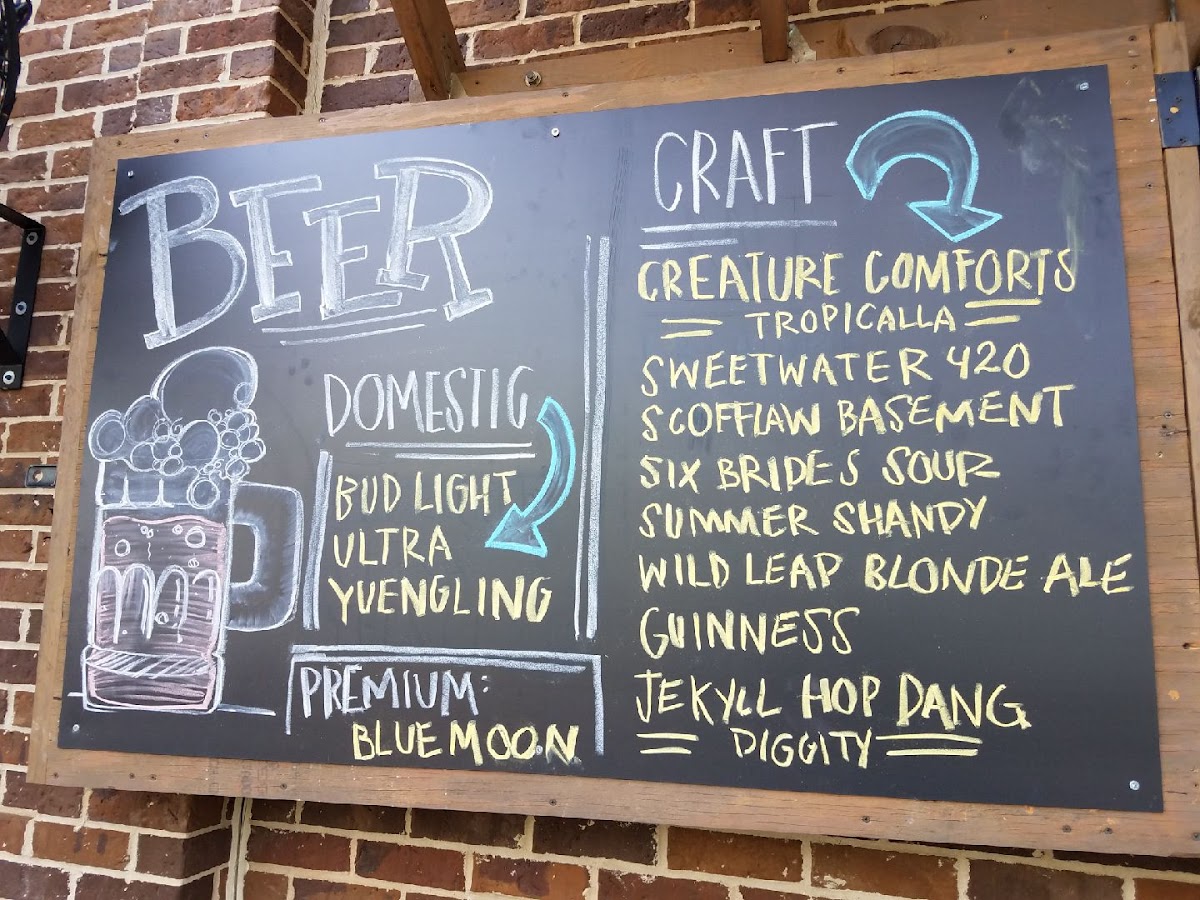 BEER
DOMESTIC
BUD LIGHT
ULTRA
YUENGLING
PREMIUM:
BLUE MOON
CRAFT
CREATURE COMFORTS
TROPICALLA
SWEETWATER 420
SCOFFLAW BASEMENT
SIX BRIDES SOUR
SUMMER SHANDY
WILD LEAP BLONDE ALE
GUINNESS
JEKYLL HOP DANG
DIGGITY